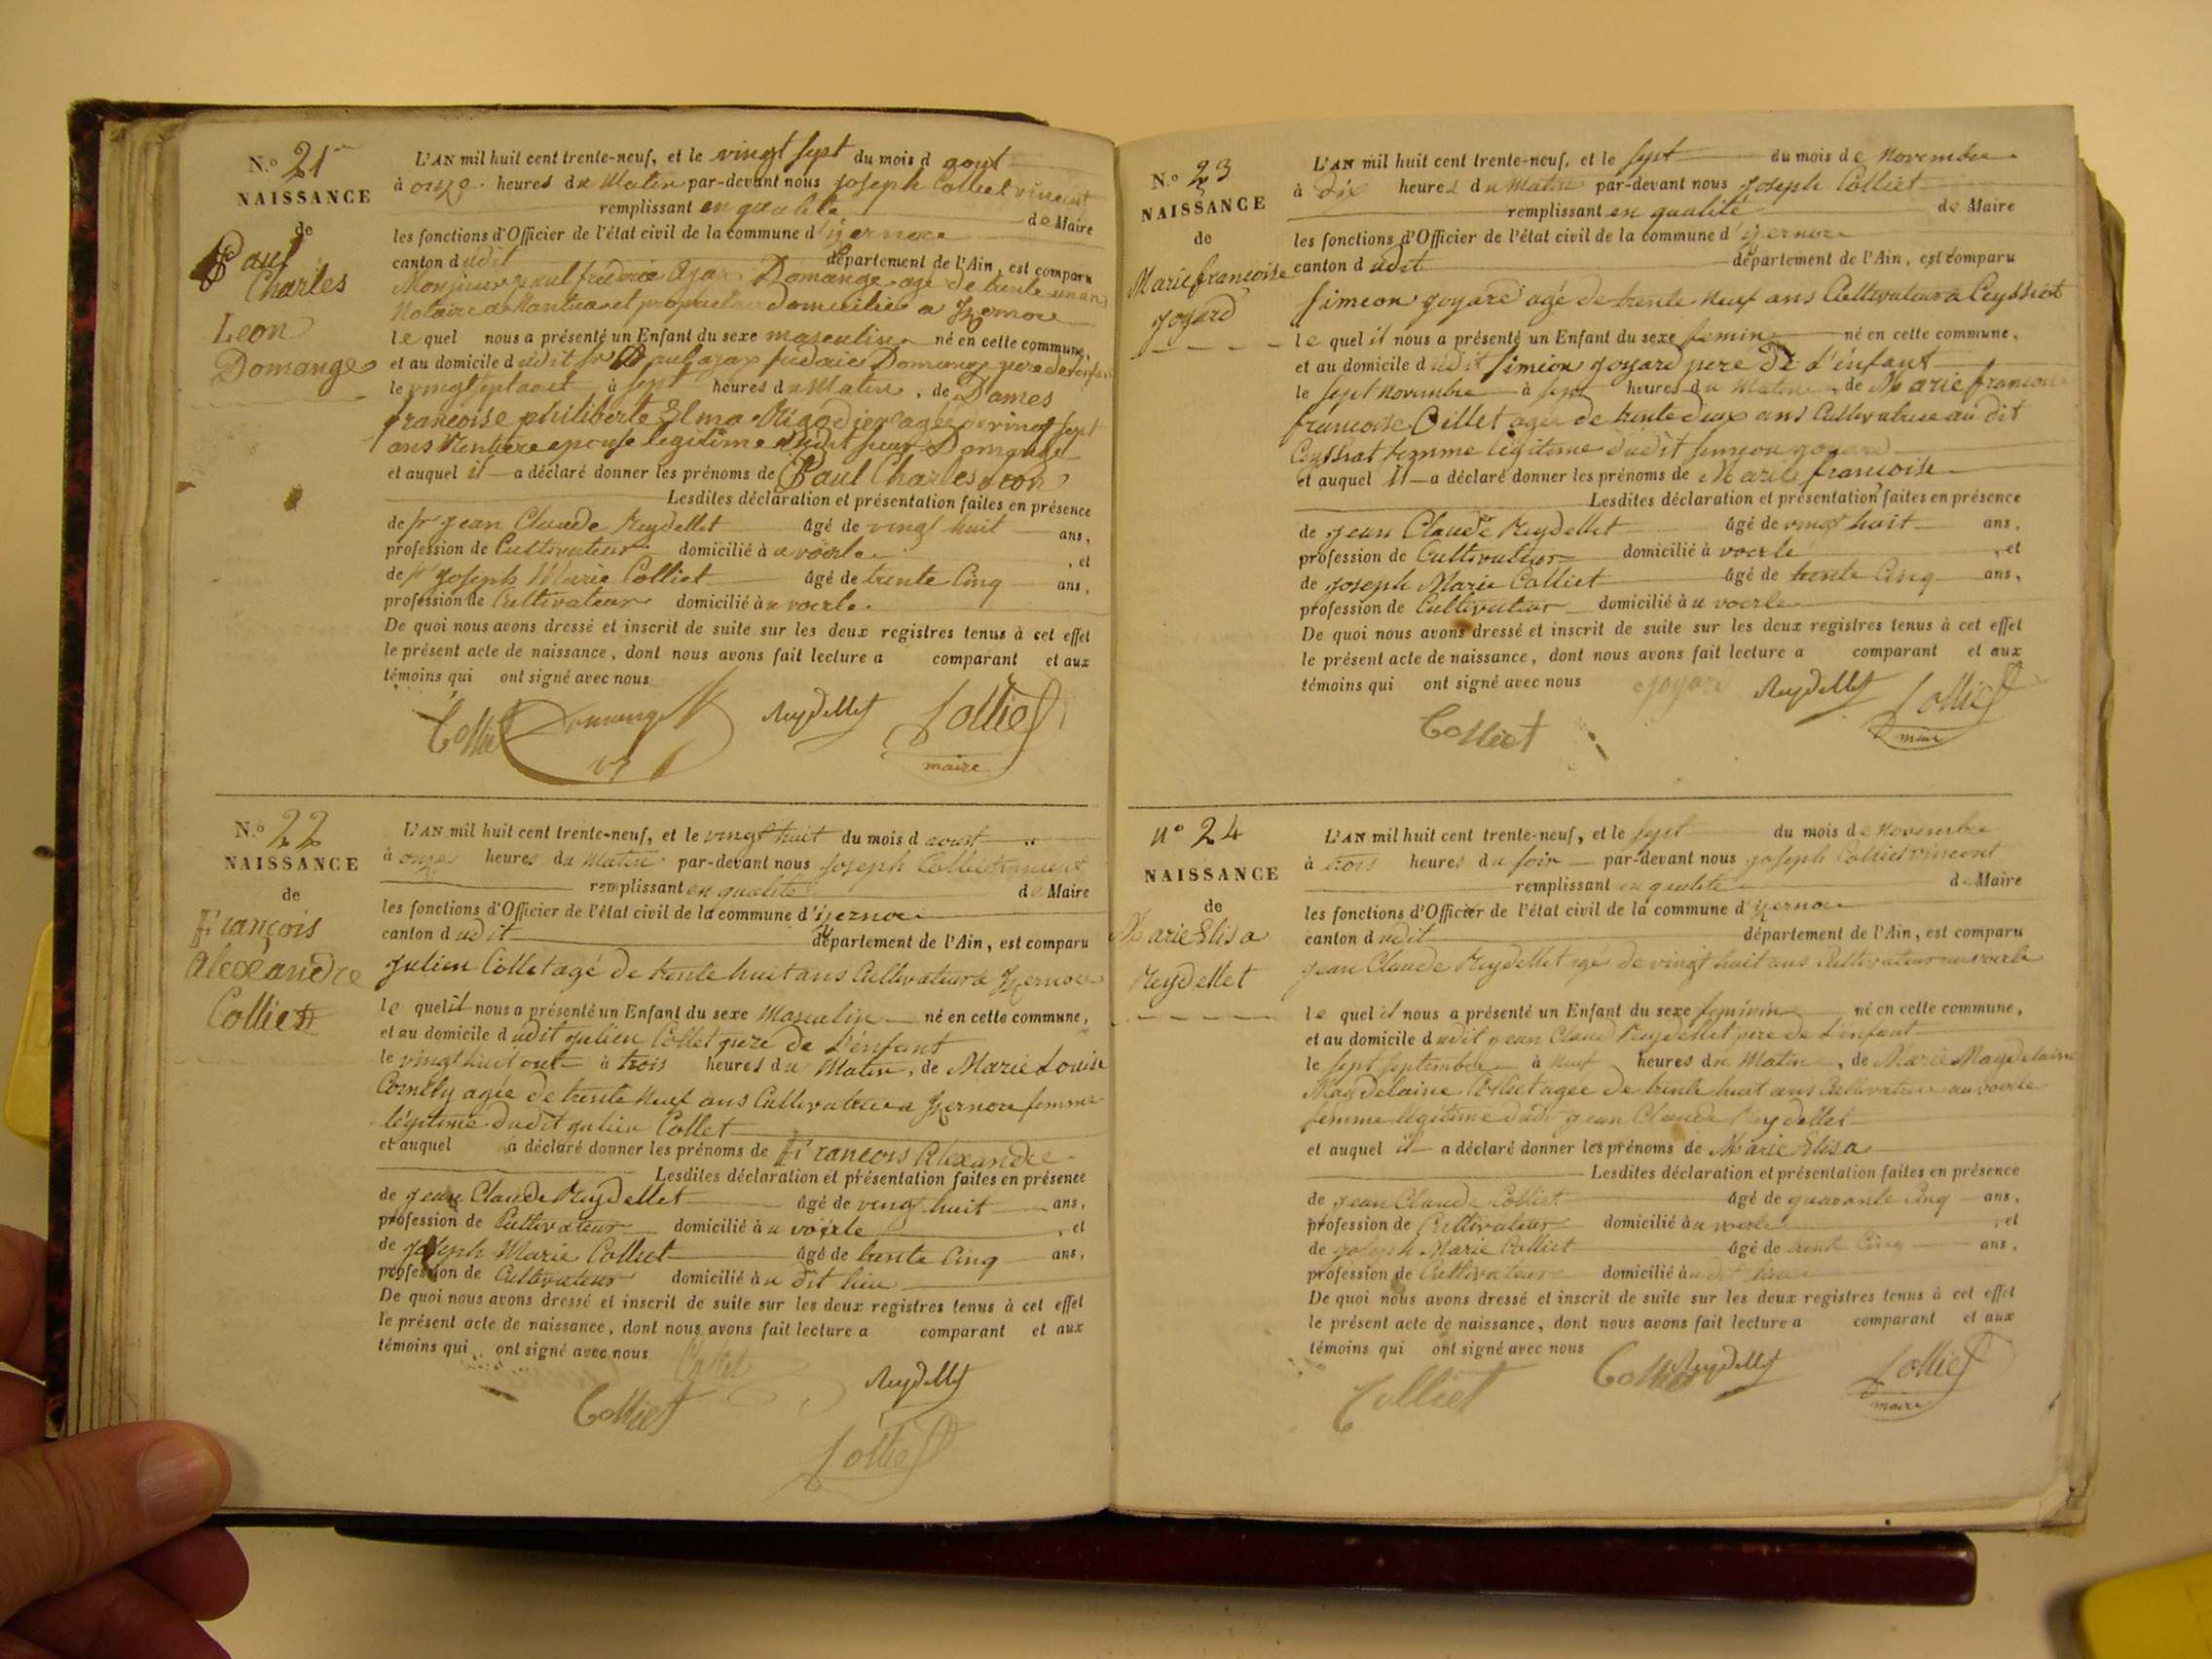 N.º 21
NAISSANCE
de
Paul
Charles
Leon
Domange
L'AN mil huit cent trente-neuf, et le vingt sept du mois d aout
à onze heures du Matin par-devant nous Joseph Colliet vincent
remplissant en qualité de Maire
les fonctions d'Officier de l'état civil de la commune d'yzernore
canton dudit département de l'Ain, est comparu
Monsieur paul frederic Ajax Domange agé de trente un ans
Notaire a Nantua et proprietaire domicilié a Yzernore
le quel nous a présenté un Enfant du sexe masculin né en cette commune,
et au domicile dudit sr paul ajax frederic Domange pere de l'enfant
le vingt sept aout à sept heures du Matin, de Dames
françoise philiberte Elma agée de vingt sept
ans Rentiere epouse legitime dudit sieur Domange
et auquel il a déclaré donner les prénoms de Paul Charles Leon
Lesdites déclaration et présentation faites en présence
de sr Jean Claude Reydellet âgé de vingt huit ans,
profession de Cultivateur domicilié à u voerle, et
de sr Joseph Marie Colliet âgé de trente Cinq ans,
profession de Cultivateur domicilié à u voerle.
De quoi nous avons dressé et inscrit de suite sur les deux registres tenus à cet effet
le présent acte de naissance, dont nous avons fait lecture a comparant et aux
témoins qui ont signé avec nous
Colliet Domange Reydellet Colliet
maire
N.º 22
NAISSANCE
de
François
alexandre
Colliet
L'AN mil huit cent trente-neuf, et le vingt huit du mois d aoust
à onze heures du Matin par-devant nous Joseph Colliet vincent
remplissant en qualité de Maire
les fonctions d'Officier de l'état civil de la commune d'yzernore
canton dudit département de l'Ain, est comparu
Julien Collet agé de trente huit ans Cultivateur a Yzernore
le quel il nous a présenté un Enfant du sexe Masculin né en cette commune,
et au domicile dudit Julien Collet pere de l'enfant
le vingt huit out à trois heures du Matin, de Marie Louise
Cornely agée de trente neuf ans Cultivatrice a Yzernore femme
légitime dudit Julien Collet
et auquel a déclaré donner les prénoms de François Alexandre
Lesdites déclaration et présentation faites en présence
de Jean Claude Reydellet âgé de vingt huit ans,
profession de Cultivateur domicilié à u voerle, et
de Joseph Marie Colliet âgé de trente Cinq ans,
profession de Cultivateur domicilié à u dit lieu
De quoi nous avons dressé et inscrit de suite sur les deux registres tenus à cet effet
le présent acte de naissance, dont nous avons fait lecture a comparant et aux
témoins qui ont signé avec nous
Collet Reydellet
Colliet
Colliet
N.º 23
NAISSANCE
de
Marie françoise
Goyard
L'AN mil huit cent trente-neuf, et le sept du mois de Novembre
à Dix heures du Matin par-devant nous Joseph Colliet
remplissant en qualité de Maire
les fonctions d'Officier de l'état civil de la commune d'yzernore
canton dudit département de l'Ain, est comparu
Simeon Goyard agé de trente neuf ans Cultivateur a Ceyssiat
le quel il nous a présenté un Enfant du sexe femin né en cette commune,
et au domicile dudit Simeon Goyard pere De l'énfant
le sept Novembre à sept heures du Matin, de Marie françoise
françoise Billet agée de trente deux ans Cultivatrice au dit
Ceyssiat femme légitime dudit Simeon goyard
et auquel il a déclaré donner les prénoms de Marie françoise
Lesdites déclaration et présentation faites en présence
de Jean Claude Reydellet âgé de vingt huit ans,
profession de Cultivateur domicilié à voerle, et
de Joseph Marie Colliet âgé de trente Cinq ans,
profession de Cultivateur domicilié à u voerle
De quoi nous avons dressé et inscrit de suite sur les deux registres tenus à cet effet
le présent acte de naissance, dont nous avons fait lecture a comparant et aux
témoins qui ont signé avec nous
Goyard Reydellet Colliet
Colliet maire
n° 24
NAISSANCE
de
Marie Elisa
Reydellet
L'AN mil huit cent trente-neuf, et le sept du mois de Novembre
à trois heures du soir par-devant nous Joseph Colliet vincent
remplissant en qualité de Maire
les fonctions d'Officier de l'état civil de la commune d'yzernore
canton dudit département de l'Ain, est comparu
Jean Claude Reydellet agé de vingt huit ans Cultivateur au voerle
le quel il nous a présenté un Enfant du sexe feminin né en cette commune,
et au domicile dudit Jean Claud Reydellet pere de l'énfant
le sept septembre à neuf heures du Matin, de Marie Magdelaine
Magdelaine Colliet agée de trente huit ans Cultivatrice au voerle
femme légitime dudit Jean Claude Reydellet
et auquel il a déclaré donner les prénoms de Marie Elisa
Lesdites déclaration et présentation faites en présence
de Jean Claude Colliet âgé de quarante Cinq ans,
profession de Cultivateur domicilié à u voerle, et
de Joseph Marie Colliet âgé de trente Cinq ans,
profession de Cultivateur domicilié à u dit lieu
De quoi nous avons dressé et inscrit de suite sur les deux registres tenus à cet effet
le présent acte de naissance, dont nous avons fait lecture a comparant et aux
témoins qui ont signé avec nous
Colliet Colliet Reydellet Colliet
maire